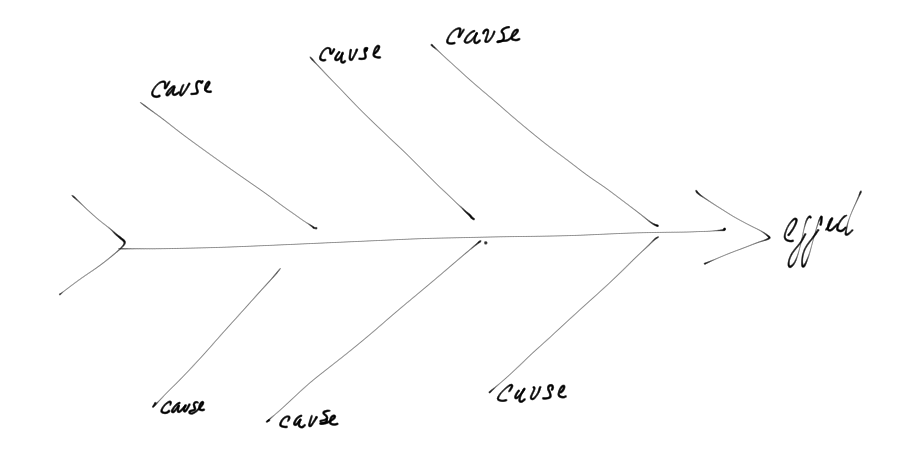 cause
cause
cause
effect
cause
cause
cause